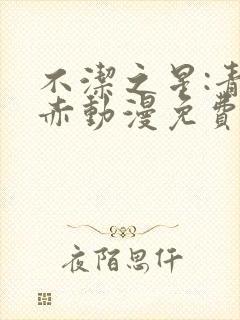 不潔之星:青
赤動漫免費
夜陌思仟